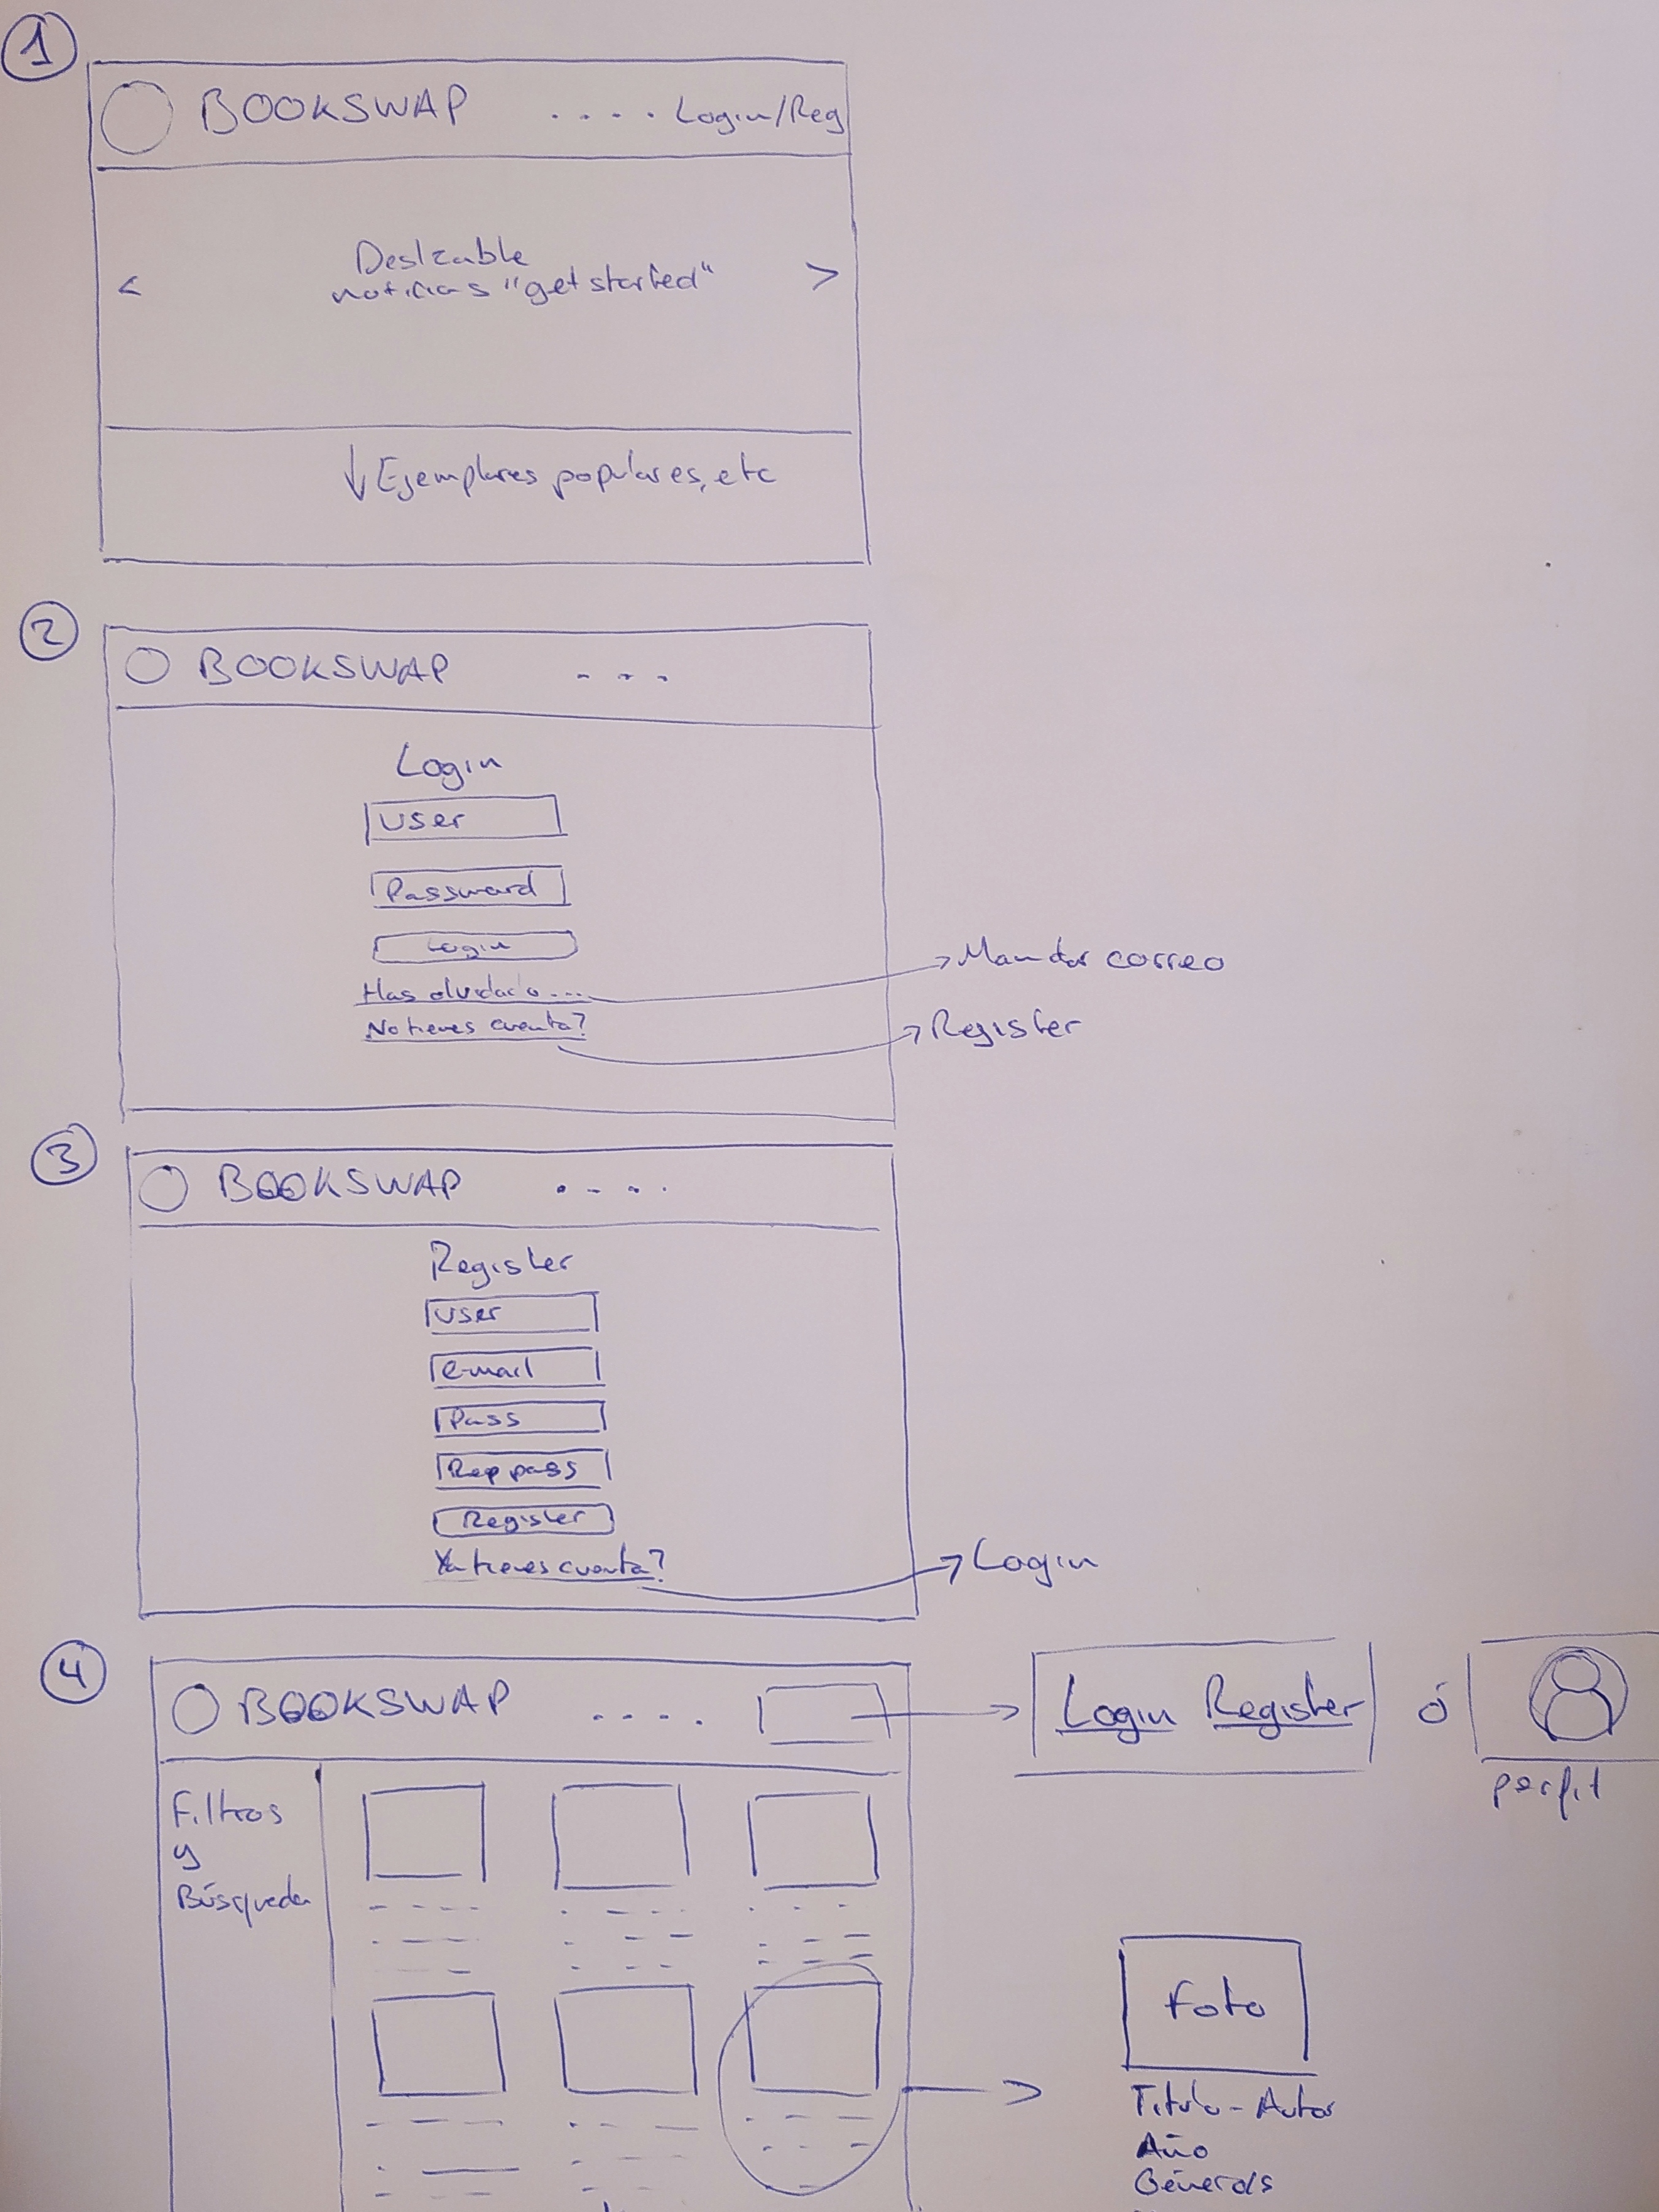 1
BOOKSWAP .... Login/Reg
Deslizable
< noticias "get started" >
↓ Ejemplares populares, etc
2
BOOKSWAP ...
Login
User
Password
Login
Has olvidado... → Mandar correo
No tienes cuenta? → Register
3
BOOKSWAP ....
Register
User
e-mail
Pass
Rep pass
Register
Ya tienes cuenta? → Login
4
BOOKSWAP .... → Login Register ó
perfil
Filtros
y
Búsqueda
Foto
Titulo - Autor
Año
Género/s